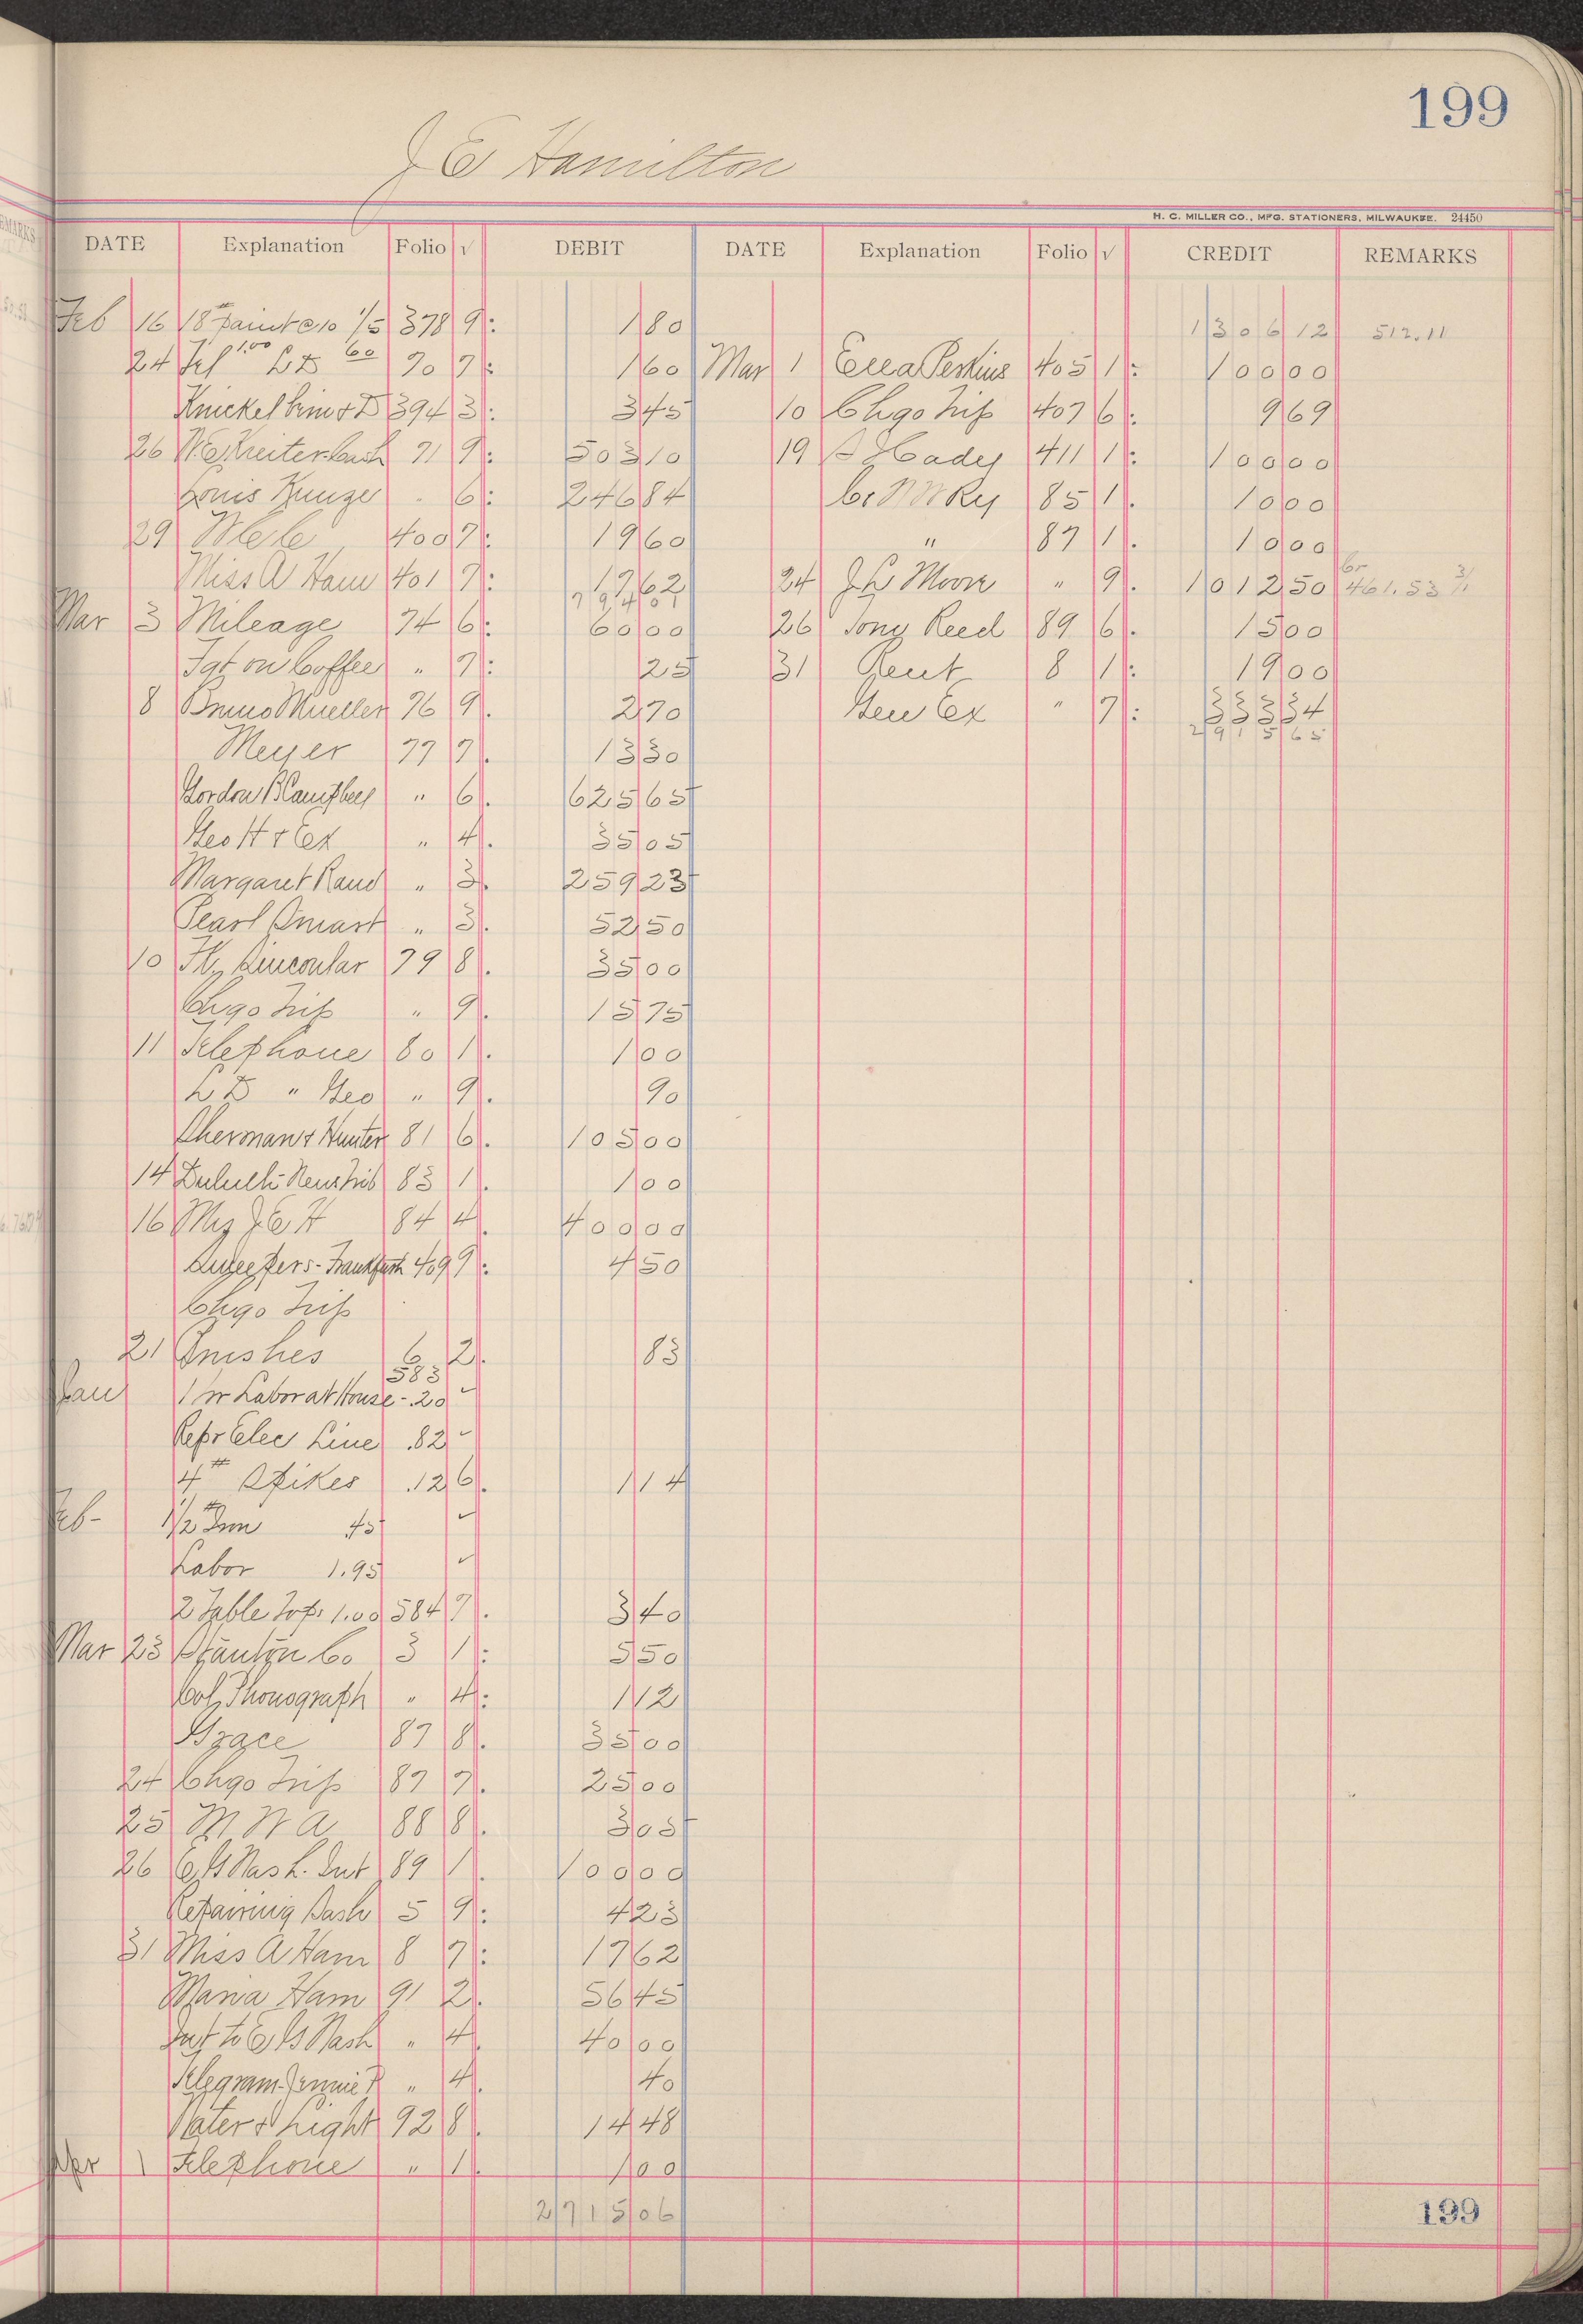 199
J E Hamilton
H. C. MILLER CO., MFG. STATIONERS, MILWAUKEE. 24450
DATE Explanation Folio √ DEBIT DATE Explanation Folio √ CREDIT REMARKS
Feb 16 18 1/5 378 9 1 80 1306 12 512.11
24 Tel 1.00 L D 60 90 7 1 60 Mar 1 Perkins 405 1 100 00
394 3 3 45 10 Chgo Trip 407 6 9 69
26 91 9 503 10 19 411 1 100 00
Louis Kunze 6 246 84 Ry 85 1 10 00
29 400 7 19 60 " 87 1 10 00
Miss A Ham 401 7 17 62 24 Moore " 9 1012 50 461.53 3/1
Mar 3 Mileage 74 6 60 00 26 Tony Reed 89 6 15 00
Fgt on Coffee " 7 25 31 Rent 8 1 19 00
8 Bruno Mueller 76 9 2 70 Gen Ex " 7 333 34
2915 65
Meyer 77 7 13 30
Gordon B Campbell " 6 625 65
Geo H & Ex " 4 35 05
Margaret Rand " 3 259 23
Pearl Smart " 3 52 50
10 79 8 35 00
Chgo Trip " 9 15 75
11 Telephone 80 1 1 00
L D " Geo " 9 90
Sherman & Hunter 81 6 105 00
14 Duluth News Trib 83 1 1 00
16 Mrs J E H 84 4 400 00
Frankfurth 409 9 4 50
Chgo Trip
21 6 2 83
583
Jan 1 hr Labor at House - .20
Repr Elec Line .82
4# Spikes .12 6 1 14
Feb - 1/2# 45
Labor 1.95
2 Table Tops 1.00 584 7 3 40
Mar 23 Co 3 1 5 50
Col Phonograph " 4 1 12
Grace 87 8 35 00
24 Chgo Trip 87 7 25 00
25 M W A 88 8 3 05
26 E G Nash Int 89 1 100 00
Repairing Sash 5 9 4 23
31 Miss A Ham 8 7 17 62
Maria Ham 91 2 56 45
Int to E G Nash " 4 40 00
Telegram Jennie " 4 40
Water & Light 92 8 14 48
Apr 1 Telephone " 1 1 00
2715 06
199